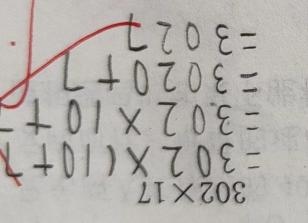 302×17
=302×(10+7
=302×10+7
=3020+7
=3027